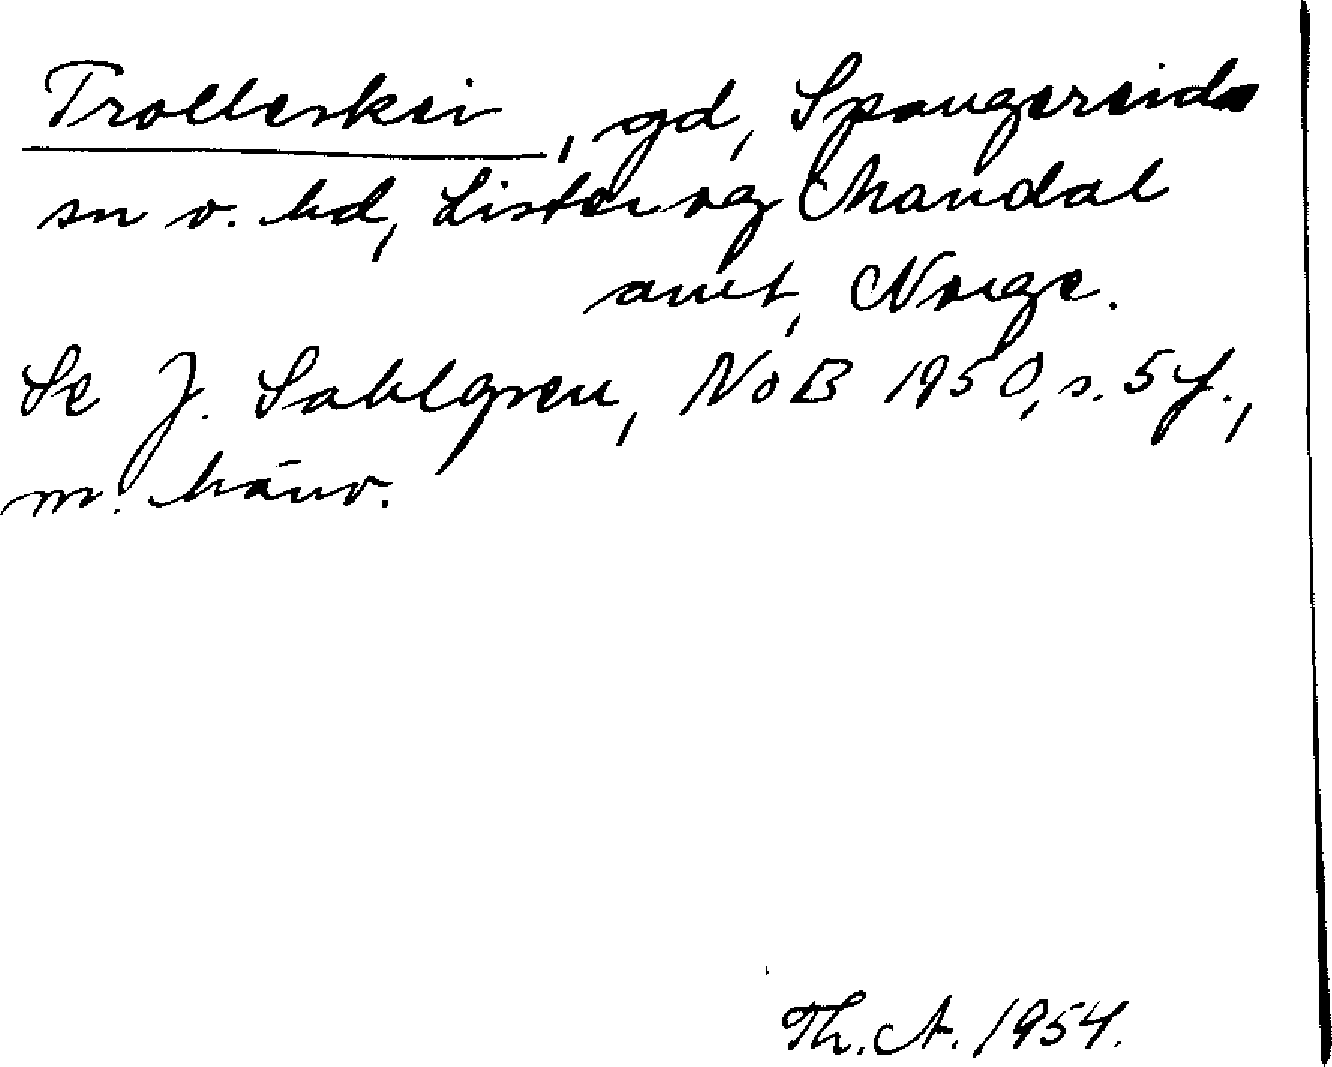 Trolleskei, gd, Spangereids
sn o. hd, Lister og Mandal
amt, Norge.
Se J. Sahlgren, NoB 1950, s. 5 f.,
m. hänv.
Th. A. 1954.